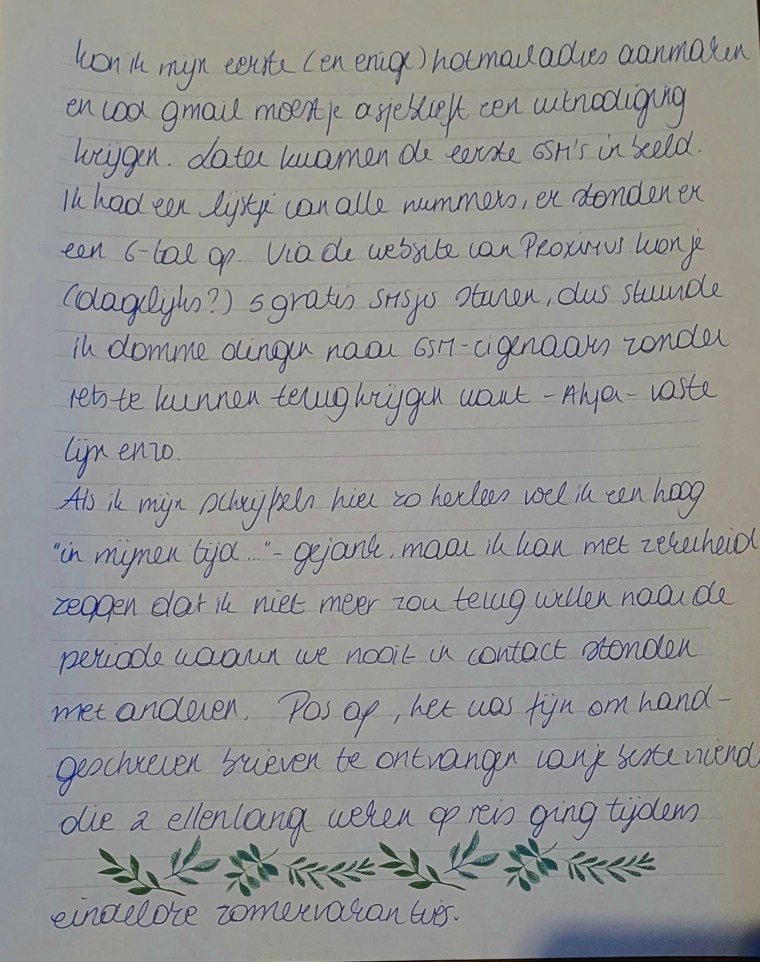 kon ik mijn eerste (en enige) hotmailadres aanmaken
en voor gmail moest je asjeblieft een uitnodiging
krijgen. Later kwamen de eerste GSM's in beeld.
Ik had een lijstje van alle nummers, er stonden er
een 6-tal op. Via de website van Proximus kon je
(dagelijks?) 5 gratis SMSjes sturen, dus stuurde
ik domme dingen naar GSM-eigenaars zonder
iets te kunnen terugkrijgen want - Ahja - vaste
lijn enzo.
Als ik mijn schrijfsels hier zo herlees voel ik een hoog
"in mijnen tijd..."- gejank, maar ik kan met zekerheid
zeggen dat ik niet meer zou terug willen naar de
periode waarin we nooit in contact stonden
met anderen. Pas op, het was fijn om hand-
geschreven brieven te ontvangen van je beste vriend
die 2 ellenlang weken op reis ging tijdens
eindeloze zomervakanties.